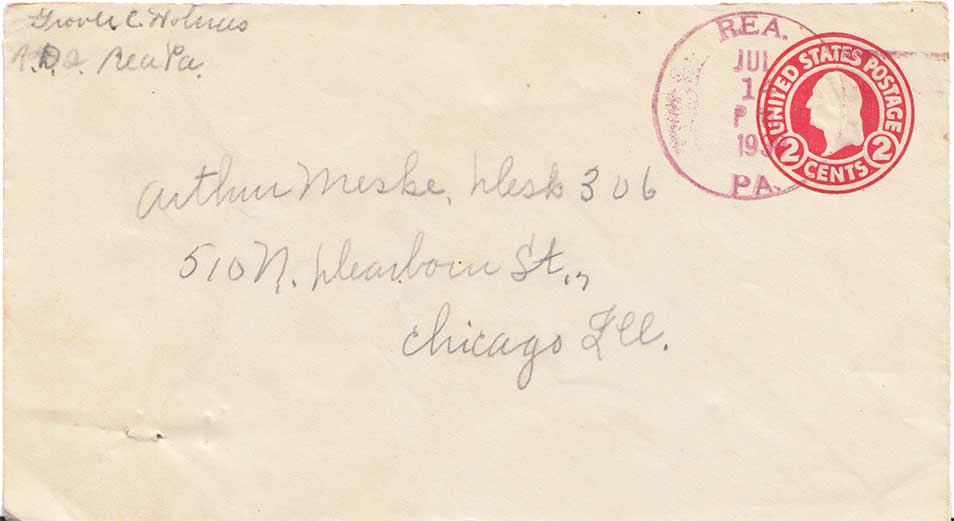 Grover C. Holmes
R.D.2. Rea Pa.
REA.
JUL
1
P
193
PA.
UNITED STATES POSTAGE
2 CENTS 2
Arthur Meske, Desk 306
510 N. Dearborn St.,
Chicago Ill.